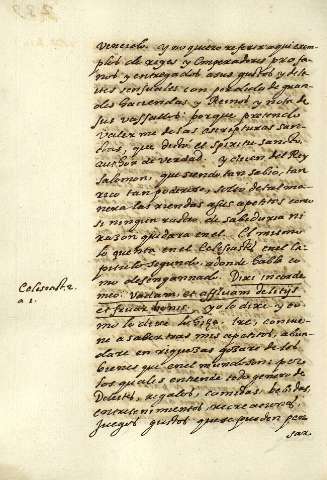 vencerlo. Y no quiero referir aqui exem-
plos de reyes y Emperadores profa-
nos y entregados a sus gustos y delei-
tes sensuales con perdida de gran-
des haciendas y Reinos y nota de
sus vassallos: porque pretendo
valerme de las escripturas san-
tas, que dictó el Spiritu sancto
author de verdad. Y dicen del Rey
Salomon, que siendo tan sabio, tan
rico tan poderoso, solto de tal ma-
nera las riendas a sus apetitos como
si ningun rastro de sabiduria ni
razon quedara en el. El mismo
lo quenta en el Eclesiastes en el Ca-
pitulo segundo, adonde habla co-
mo desengannado. Dixi in corde
meo: Vadam, et affluam delitijs
et fruar bonis. yo lo dixe y co-
mo lo dixe lo hize. Ire, convie-
ne a saber tras mis apetitos, abun-
dare en riquezas gozare de los
bienes que en el mundo son por
los quales entiende todo genero de
Deleites, regalos, comidas, bebidas,
entretenimientos, recreaciones,
Juegos gustos que se pueden pen
sar.
Eclesiast. 2.
a 1.